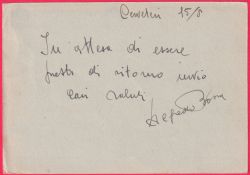 15/8
In attesa di essere
presto di ritorno invio
Cari saluti
Alfredo